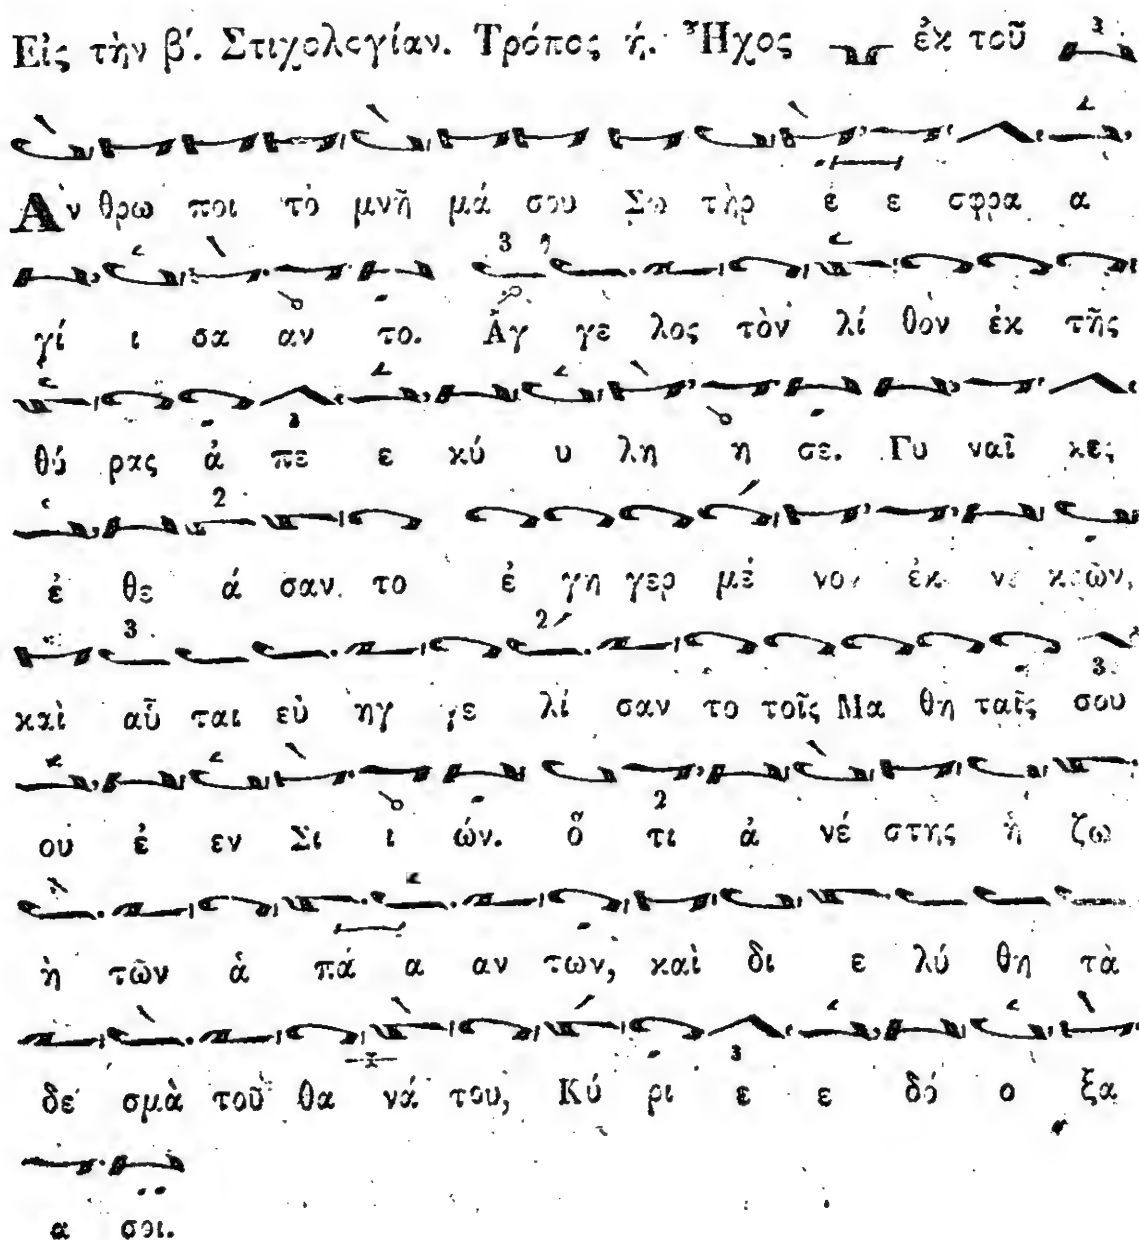 Εἰς τὴν β΄. Στιχολογίαν. Τρόπος ή. Ἦχος ἐκ τοῦ 3
Ἄν θρω ποι τὸ μνῆ μά σου Σω τὴρ ἐ ε σφρα α
3
γί ι σα αν το. Ἄγ γε λος τὸν λί θον ἐκ τῆς
θύ ρας ἀ πε ε κύ υ λη η σε. Γυ ναῖ κες
2
ἐ θε ά σαν το ἐ γη γερ μέ νον ἐκ νε κρῶν,
3 2
καὶ αὗ ται εὐ ηγ γε λί σαν το τοῖς Μα θη ταῖς σου
3
ου ἐ εν Σι ι ών. ὅ τι ἀ νέ στης ἡ ζω
2
ὴ τῶν ἁ πά α αν των, καὶ δι ε λύ θη τὰ
δε σμὰ τοῦ θα νά του, Κύ ρι ε ε δό ο ξα
3
α σοι.